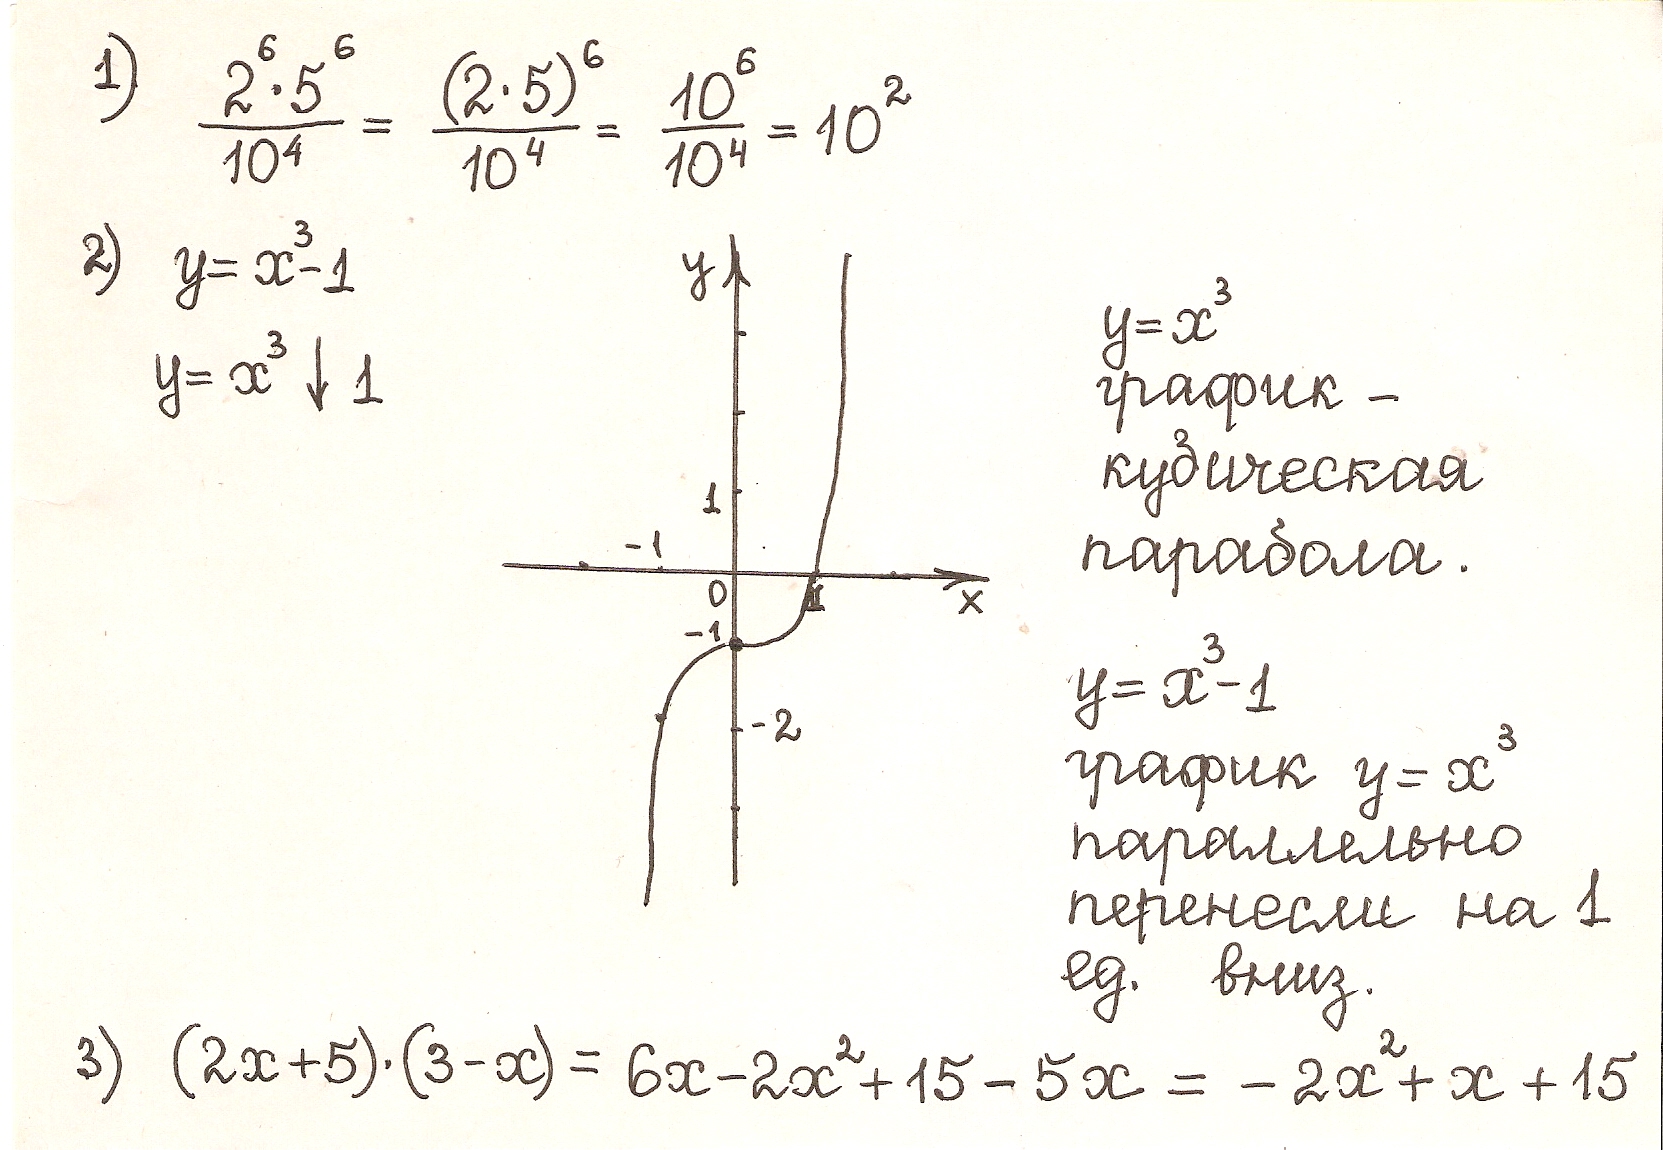 1) 2⁶·5⁶/10⁴ = (2·5)⁶/10⁴ = 10⁶/10⁴ = 10²
2) y = x³-1
y = x³ ↓ 1
y
1
-1
0
1
x
-1
-2
y = x³
график -
кубическая
парабола.
y = x³-1
график y = x³
параллельно
перенесли на 1
ед. вниз.
3) (2x+5)·(3-x) = 6x-2x²+15-5x = -2x²+x+15